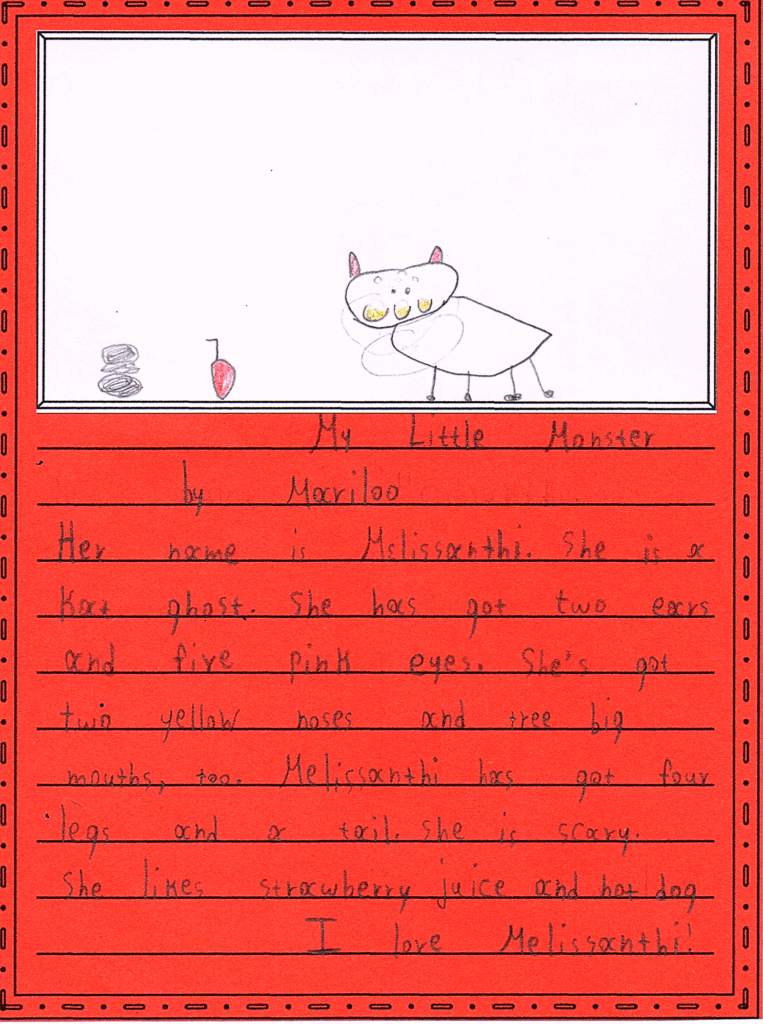 My Little Monster
by Mariloo
Her name is Melissanthi. She is a
Kat ghost. She has got two ears
and five pink eyes. She's got
two yellow noses and tree big
mouths, too. Melissanthi has got four
legs and a tail. She is scary.
She likes strawberry juice and hot dog
I love Melissanthi!